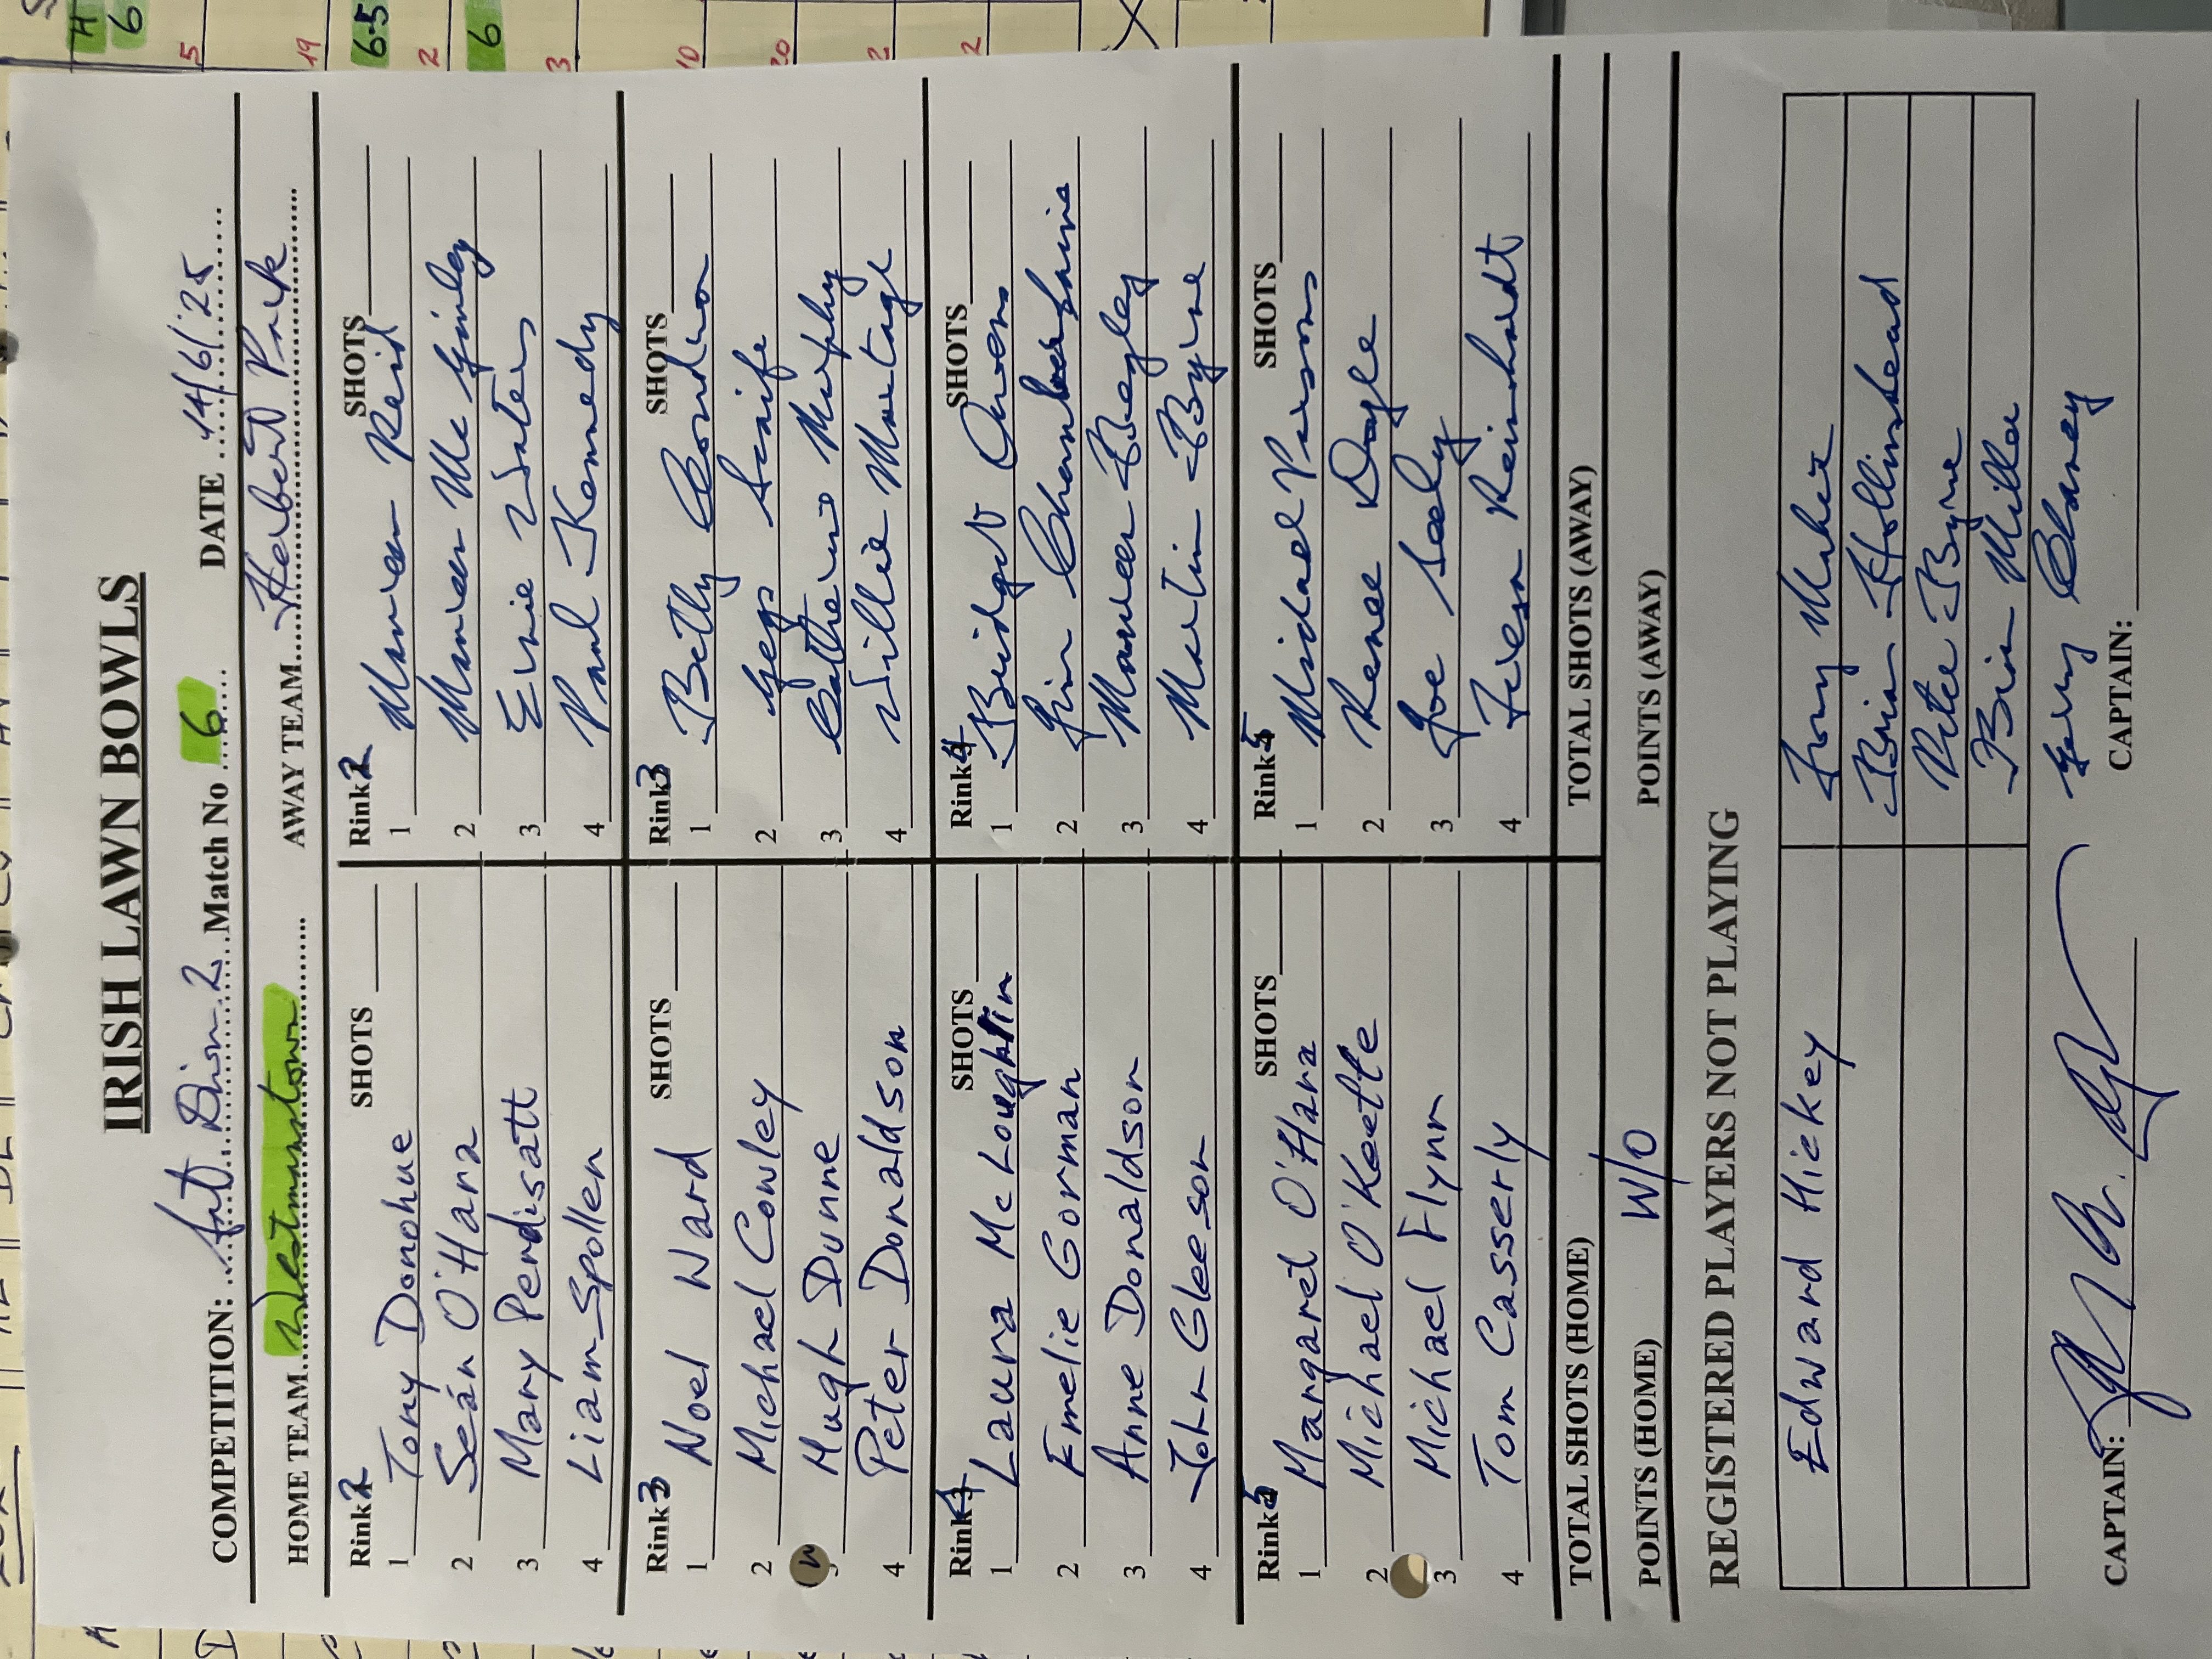 IRISH LAWN BOWLS
COMPETITION: Sat Division 2 Match No 6 DATE 14/6/25
HOME TEAM Westmanstown AWAY TEAM Herbert Park
Rink 2 SHOTS
1 Tony Donohue
2 Seán O'Hara
3 Mary Perdisatt
4 Liam Spollen
Rink 2 SHOTS
1 Maureen Reid
2 Maureen McGinley
3 Ernie Waters
4 Paul Kennedy
Rink 3 SHOTS
1 Noel Ward
2 Michael Cowley
3 Hugh Dunne
4 Peter Donaldson
Rink 3 SHOTS
1 Betty
2 Scaife
3 Murphy
4 Willie Montage
Rink 4 SHOTS
1 Laura McLoughlin
2 Emelie Gorman
3 Anne Donaldson
4 John Gleeson
Rink 4 SHOTS
1 Bridget Owens
2 Jim Chamberlaine
3 Maureen Begley
4 Martin Byrne
Rink 5 SHOTS
1 Margaret O'Hara
2 Michael O'Keeffe
3 Michael Flynn
4 Tom Casserly
Rink 5 SHOTS
1 Michael Parsons
2 Renee Doyle
3 Joe Sealy
4 Reinhardt
TOTAL SHOTS (HOME) TOTAL SHOTS (AWAY)
POINTS (HOME) W/O POINTS (AWAY)
REGISTERED PLAYERS NOT PLAYING
Edward Hickey Tony Maher
Brian Hollinshead
Peter Byrne
Brian Miller
CAPTAIN: CAPTAIN: Gerry Blaney
H
6
5
19
6-5
2
6
3
10
20
2
2